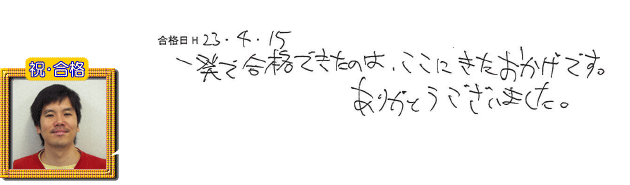 祝・合格
合格日 H 23.4.15
一発で合格できたのは、ここにきたおかげです。
ありがとうございました。